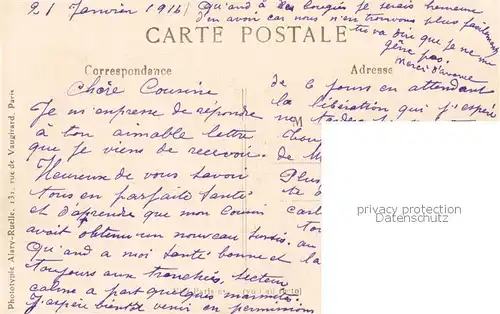 21 Janvier 1916
Quand à des bougies je serais heureuse
d'en avoir car nous n'en trouvons plus facilement
tu va dire que je ne me
gêne pas.
Merci d'avance
CARTE POSTALE
Correspondance
Adresse
Chère Cousine
Je m'enpresse de répondre
à ton aimable lettre
que je viens de recevoir.
Heureuse de vous savoir
tous en parfaite santé
et d'aprendre que mon Cousin
avait obtenu un nouveau sursis.
Qu'and a moi santé bonne et
toujours aux tranchées, secteur
calme a part quelques marmites.
J'espère bientôt venir en permission
de 6 jours en attendant
la libération que j'espère
de
Plus
Phototypie Alary-Ruelle, 131, rue de Vaugirard, Paris
privacy protection
www.oldthing.de